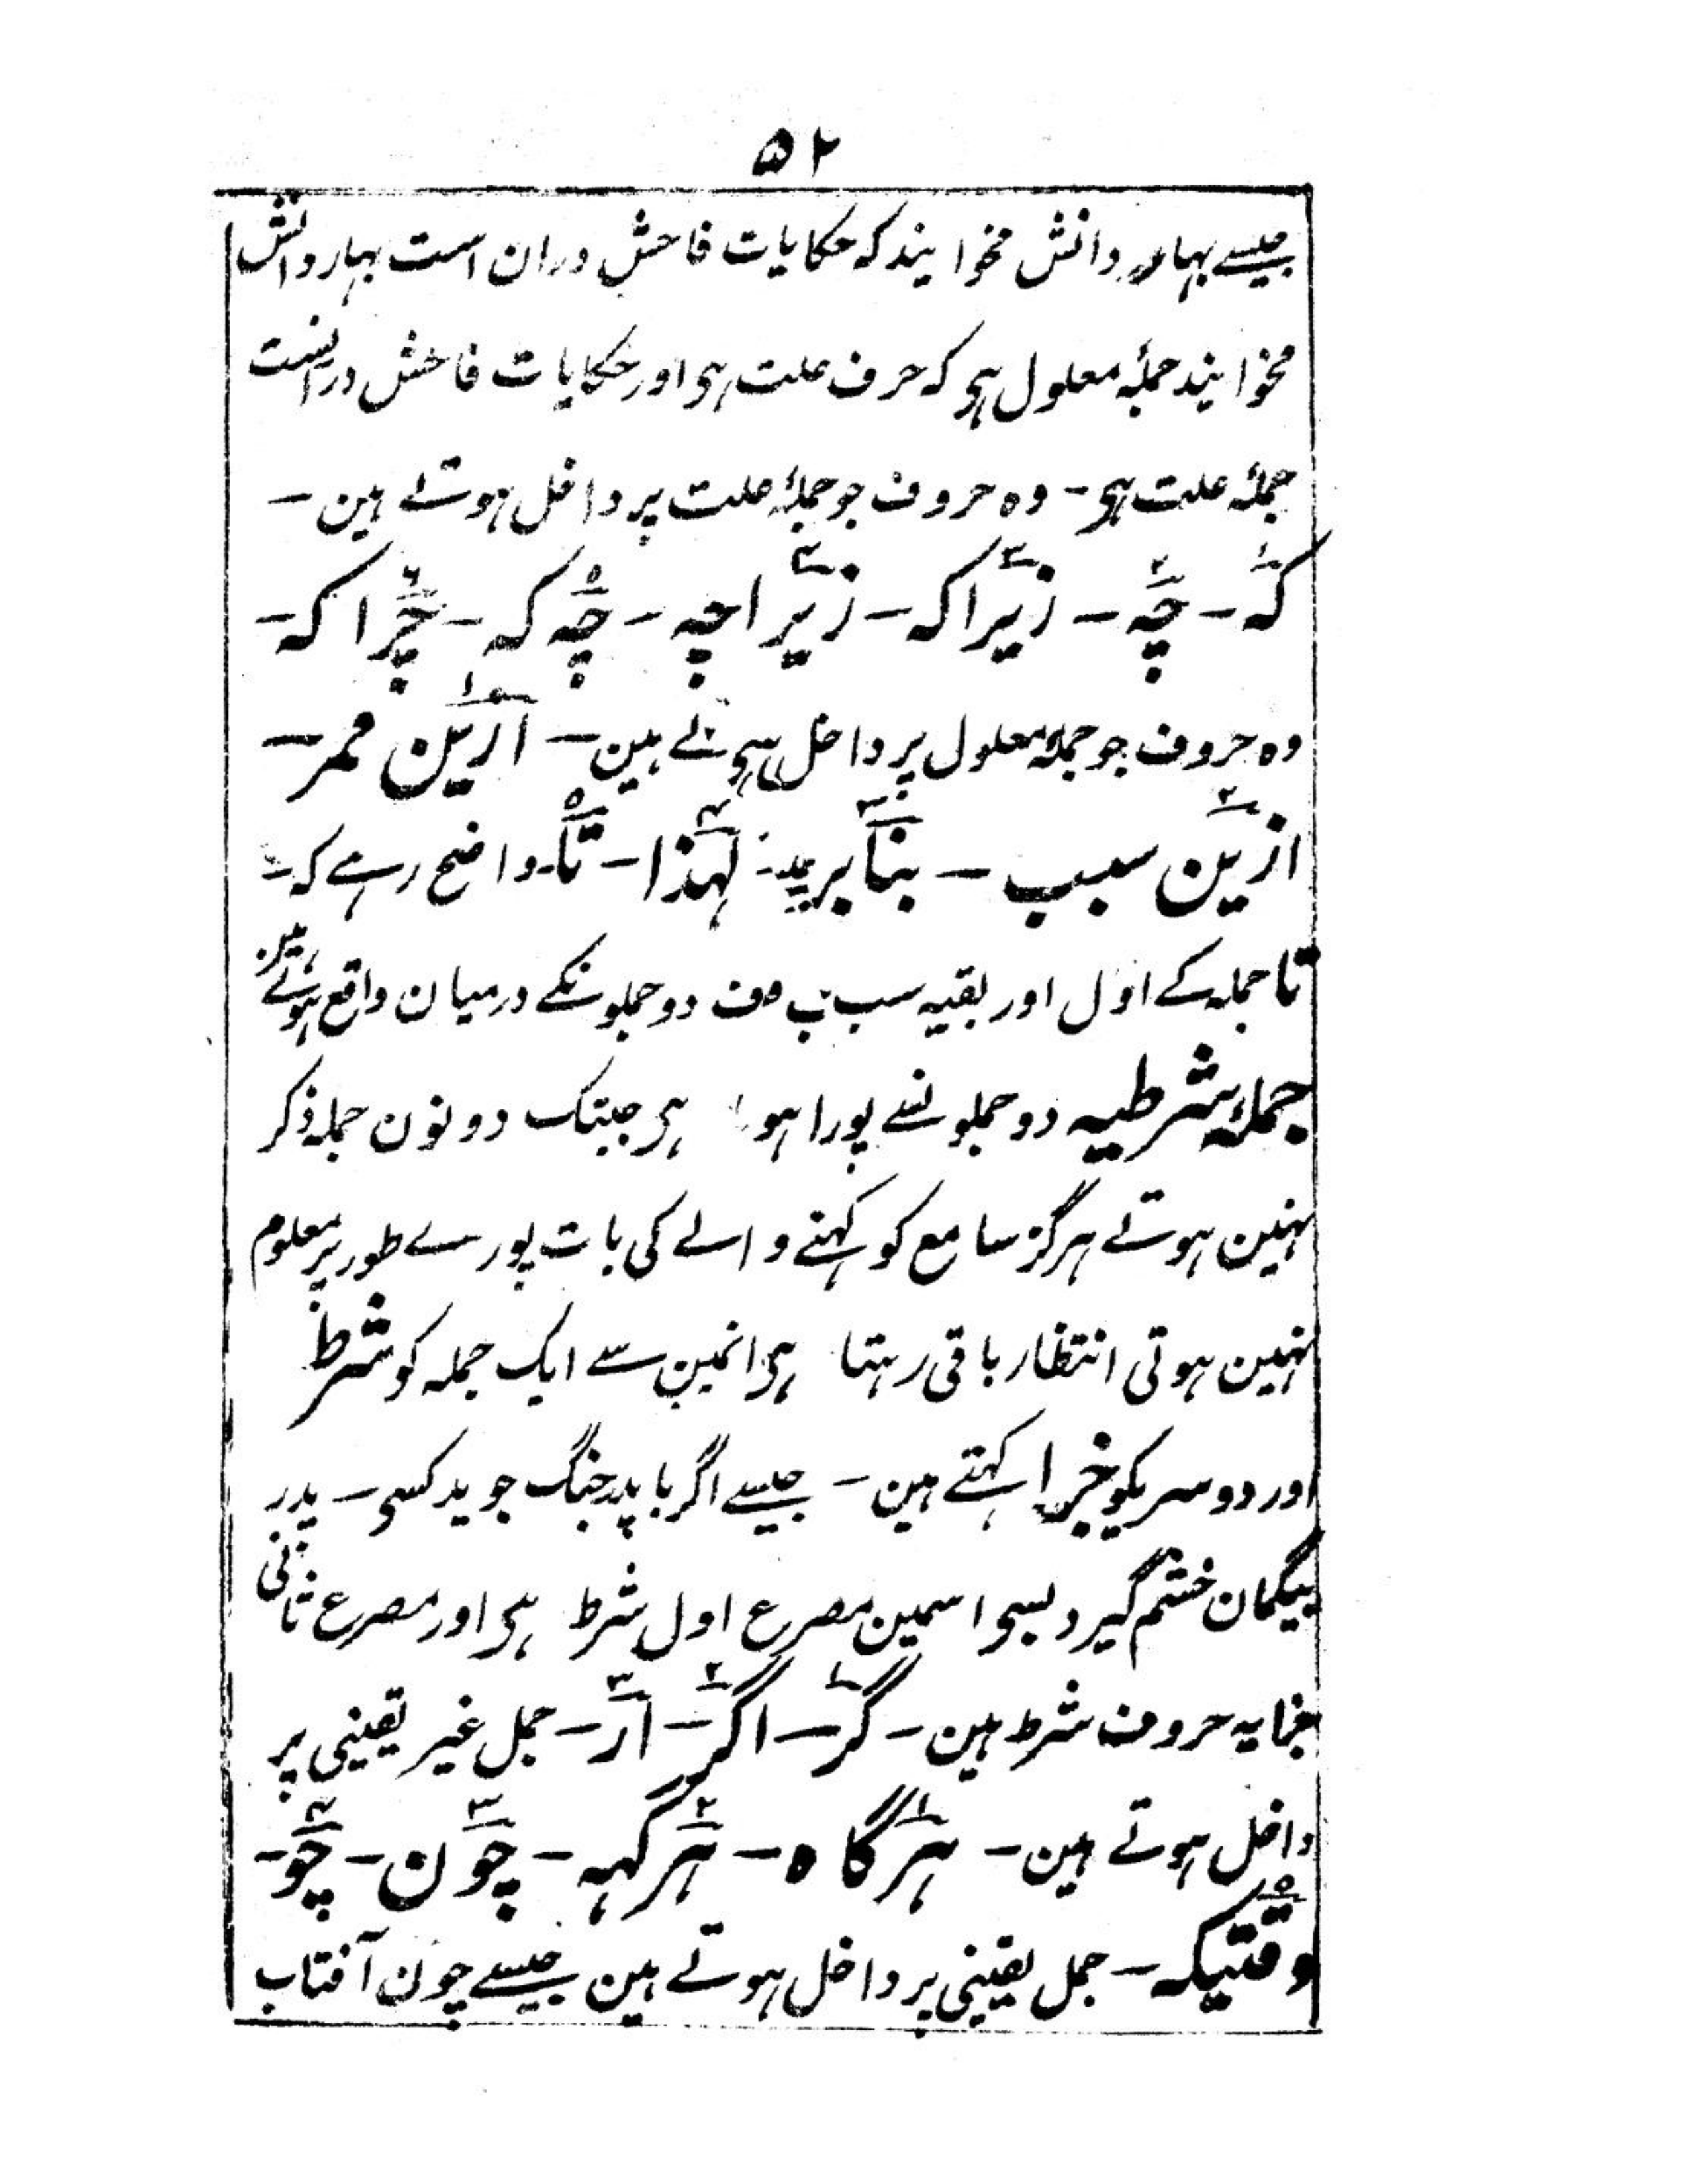 ۵۲
جیسے بہار دانش مخوانید کہ حکایات فاحش دران است بہار دانش
مخوانید جملۂ معلول ہی کہ حرف علت ہی اور حکایات فاحش درانست
جملۂ علت ہی - وہ حروف جو جملۂ علت پر داخل ہوتے ہین -
کہ - چہ - زیرا کہ - زیرا چہ - چہ کہ - چرا کہ -
وہ حروف جو جملۂ معلول پر داخل ہوتے ہین - ازین ممر -
ازین سبب - بنا برین - لہذا - تا - واضح رہے کہ -
تا جملہ کے اول اور بقیہ سب دو جملونکے درمیان واقع ہوتے ہین
جملۂ شرطیہ دو جملونسے پورا ہوا ہی جبتک دونون جملہ ذکر
نہین ہوتے ہرگز سامع کو کہنے والے کی بات پورے طور پر معلوم
نہین ہوتی انتظار باقی رہتا ہی انمین سے ایک جملہ کو شرط
اور دوسریکو جزا کہتے ہین - جیسے اگر با پدر جنگ جوید کسی - پدر
بیگمان خشم گیرد بسی اسمین مصرع اول شرط ہی اور مصرع ثانی
جزا یہ حروف شرط ہین - گر - اگر - ار - جمل غیر یقینی پر
داخل ہوتے ہین - ہرگاہ - ہرگہہ - چون - چو -
وقتیکہ - جمل یقینی پر داخل ہوتے ہین جیسے چون آفتاب